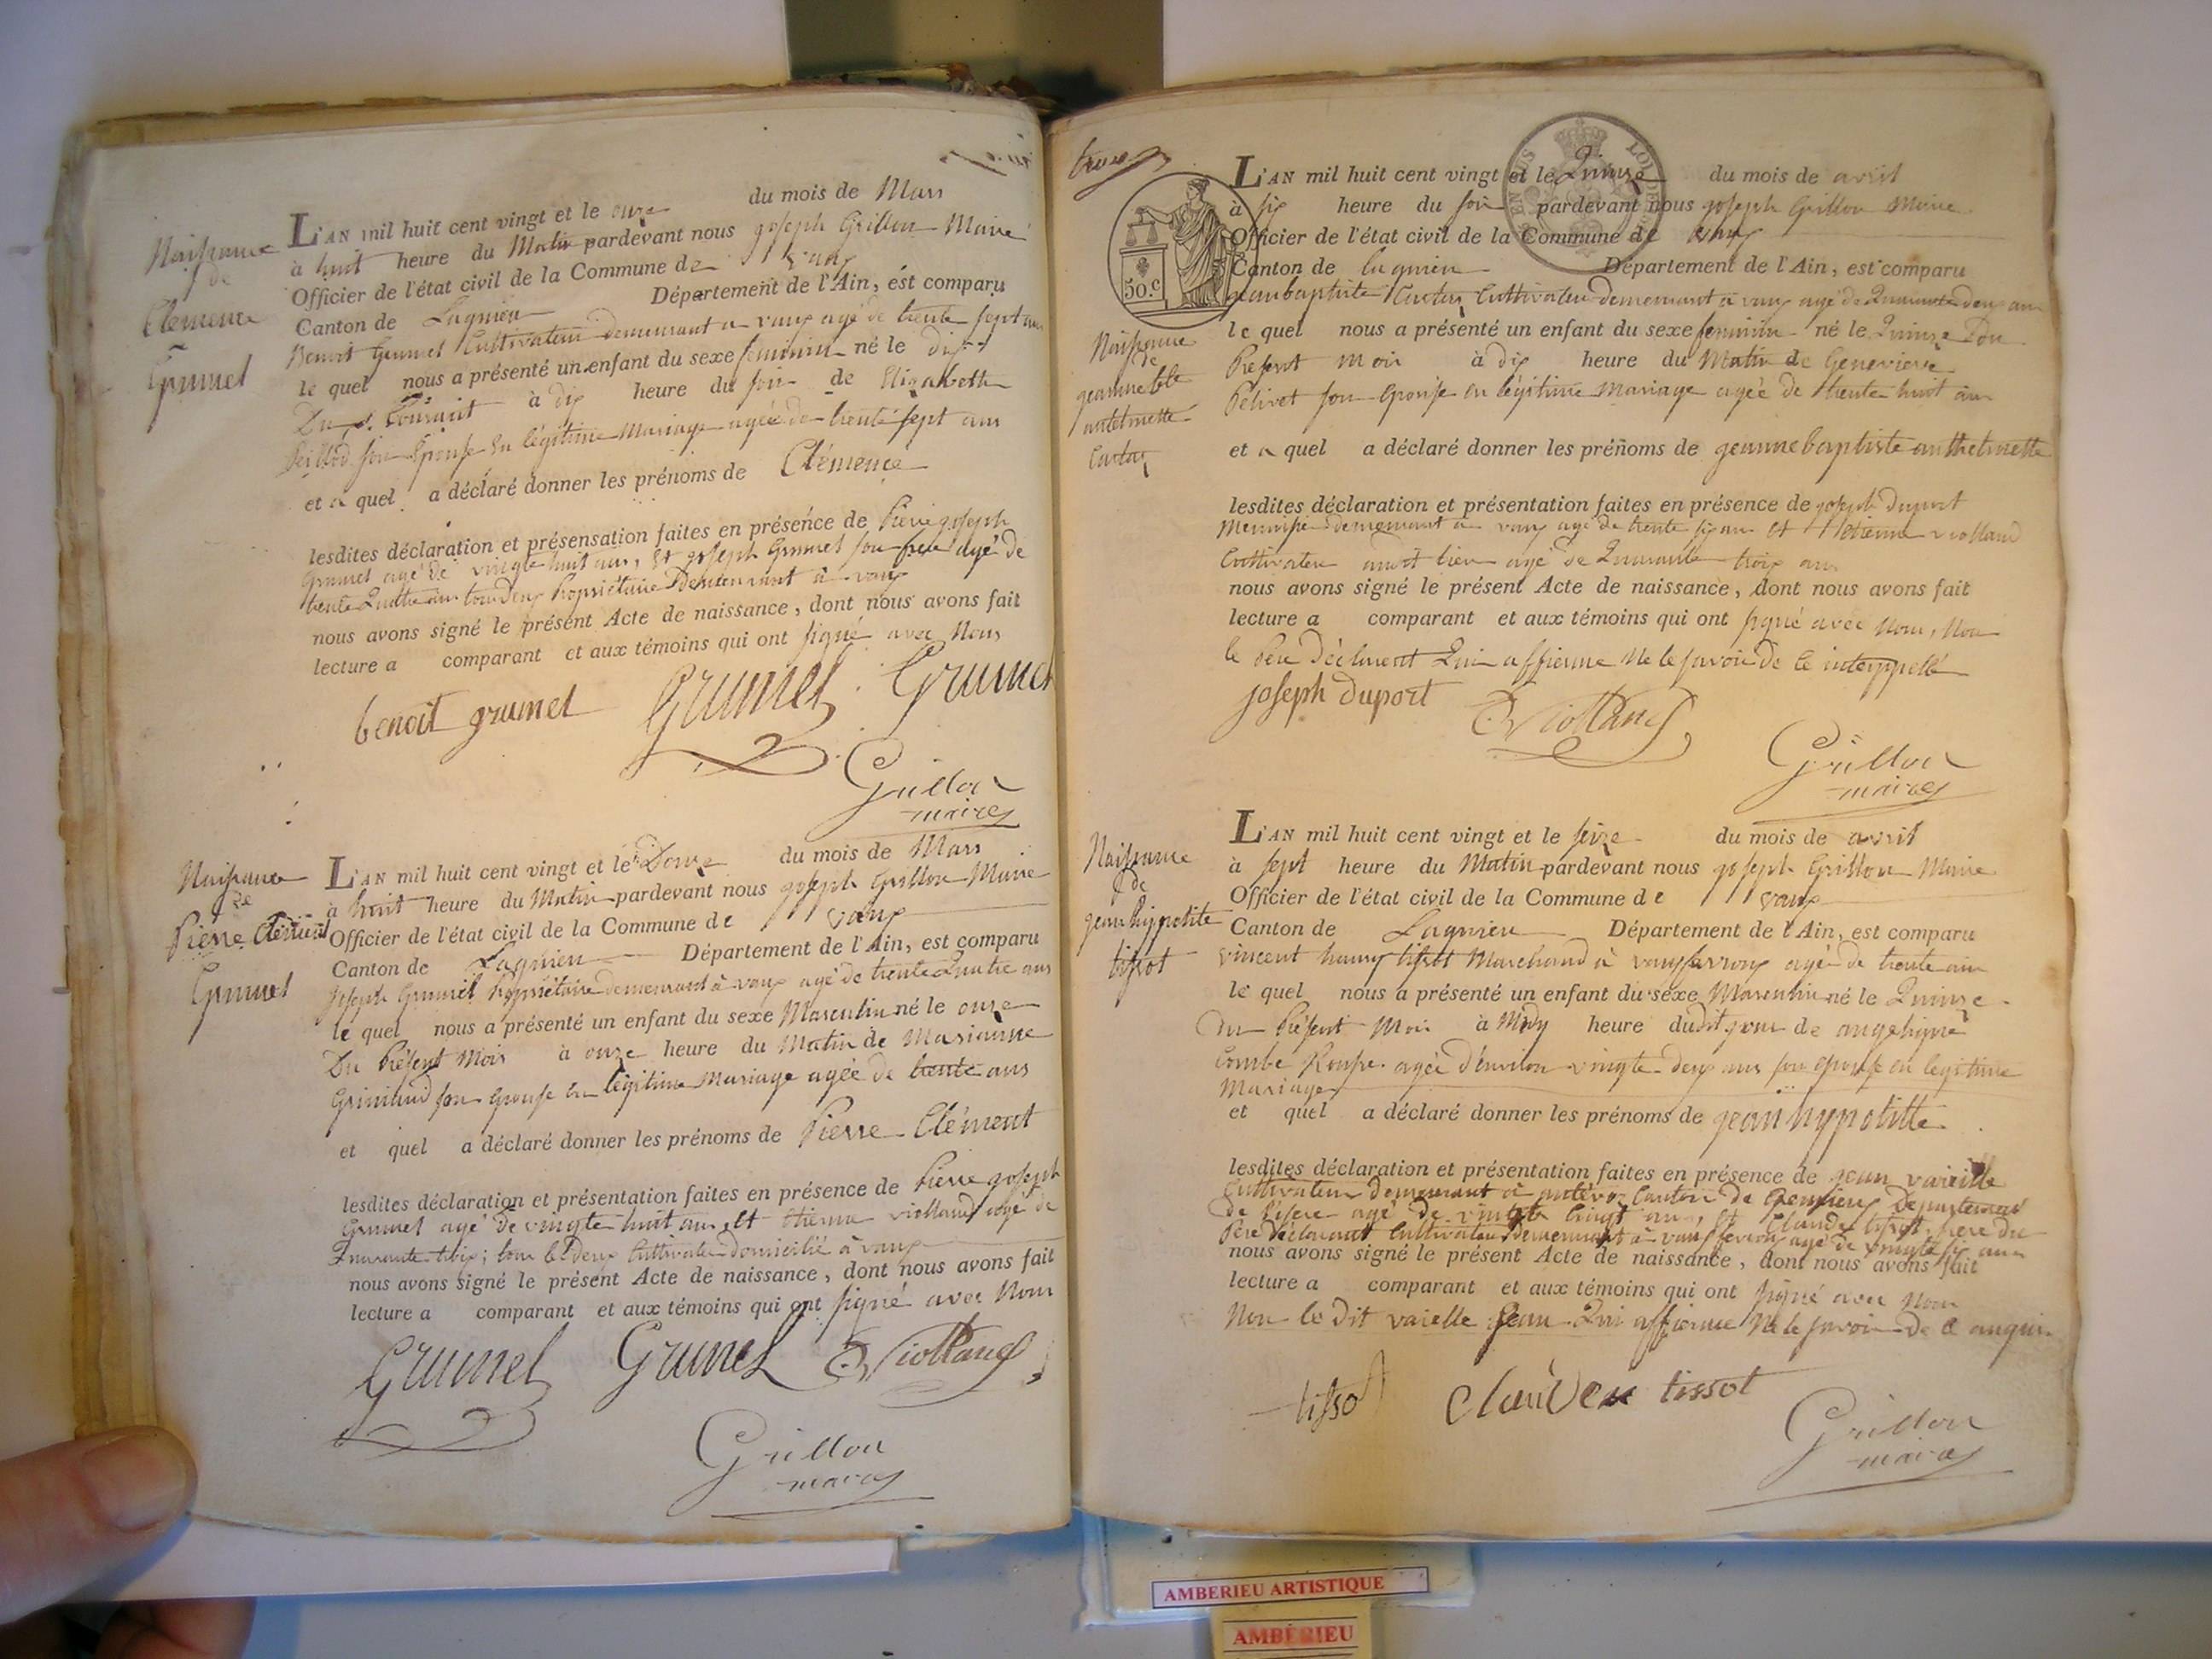 Naissance
de
Clémence
Grumel
L'AN mil huit cent vingt et le onze du mois de Mars
à huit heure du Matin pardevant nous joseph Grillon Maire
Officier de l'état civil de la Commune de vaux
Canton de Lagnieu Département de l'Ain, ést comparu
Benoit Grumel Cultivateur demeurant a vaux agé de trente sept ans
le quel nous a présenté un enfant du sexe feminin né le dix
Du Courant à dix heure du soir de Elizabeth
son Epouse En légitime Mariage agée de trente sept ans
et a quel a déclaré donner les prénoms de Clémence
lesdites déclaration et présensation faites en présence de Pierre joseph
Grumel agé de vingte huit ans, Et joseph Grumel son frere agé de
trente Quatre ans tous deux Propriétaire Demeurant à vaux
nous avons signé le présent Acte de naissance, dont nous avons fait
lecture a comparant et aux témoins qui ont signé avec Nous
benoit grumel Grumel Grumel
Grillon
maire
Naissance
de
Pierre Clément
Grumel
L'AN mil huit cent vingt et le Douze du mois de Mars
à huit heure du Matin pardevant nous joseph Grillon Maire
Officier de l'état civil de la Commune de vaux
Canton de Lagnieu Département de l'Ain, est comparu
joseph Grumel Propriétaire demeurant à vaux agé de trente Quatre ans
le quel nous a présenté un enfant du sexe Masculin né le onze
Du Présent Mois à onze heure du Matin de Marianne
son Epouse En légitime Mariage agée de trente ans
et quel a déclaré donner les prénoms de Pierre Clément
lesdites déclaration et présentation faites en présence de Pierre joseph
Grumel agé de vingte huit ans, Et Etienne violland agé de
Quarante trois; tous les deux Cultivateur domicilié à vaux
nous avons signé le présent Acte de naissance, dont nous avons fait
lecture a comparant et aux témoins qui ont signé avec Nous
Grumel Grumel E. Violland
Grillon
maire
50.c
L'AN mil huit cent vingt et le Quinze du mois de avril
à six heure du soir pardevant nous joseph Grillon Maire
Officier de l'état civil de la Commune de vaux
Canton de Lagnieu Département de l'Ain, est comparu
jeanbaptiste Cultivateur demeurant à vaux agé de Quarante deux ans
Naissance
de
jeanne bte
antelmette
le quel nous a présenté un enfant du sexe feminin né le Quinze Du
Présent Mois à dix heure du Matin de Genevieve
Pelivet son Epouse en légitime Mariage agée de trente huit ans
et a quel a déclaré donner les prénoms de jeanne baptiste anthelmette
lesdites déclaration et présentation faites en présence de joseph Duport
Menuisier demeurant a vaux agé de trente six ans Et Etienne violland
Cultivateur audit lieu agé de Quarante trois ans
nous avons signé le présent Acte de naissance, dont nous avons fait
lecture a comparant et aux témoins qui ont signé avec Nous, Non
le Pere Déclarent Qui affirme Ne le savoir de ce interppellé
joseph duport E. Violland
Grillon
maire
Naissance
de
jean hippolite
tissot
L'AN mil huit cent vingt et le seize du mois de avril
à sept heure du Matin pardevant nous joseph Grillon Maire
Officier de l'état civil de la Commune de vaux
Canton de Lagnieu Département de l'Ain, est comparu
vincent tissot Marchand à vaux agé de trente ans
le quel nous a présenté un enfant du sexe Masculin né le Quinze
Du Présent Mois à Midy heure dudit jour de angelique
Combe agée d'environ vingte deux ans son epouse en legitime
Mariage
et quel a déclaré donner les prénoms de jean hypolitte
lesdites déclaration et présentation faites en présence de jean
Cultivateur demeurant à Canton de Departement
de l'isere agé de vingt ans, Et Claude tissot, frere du
Pere déclarant Cultivateur demeurant à vaux agé de vingte six ans
nous avons signé le présent Acte de naissance, dont nous avons fait
lecture a comparant et aux témoins qui ont signé avec Nous
Non le Dit jean Qui affirme Ne le savoir De ce
tissot Clauden tissot
Grillon
maire
AMBERIEU ARTISTIQUE
AMBÉRIEU